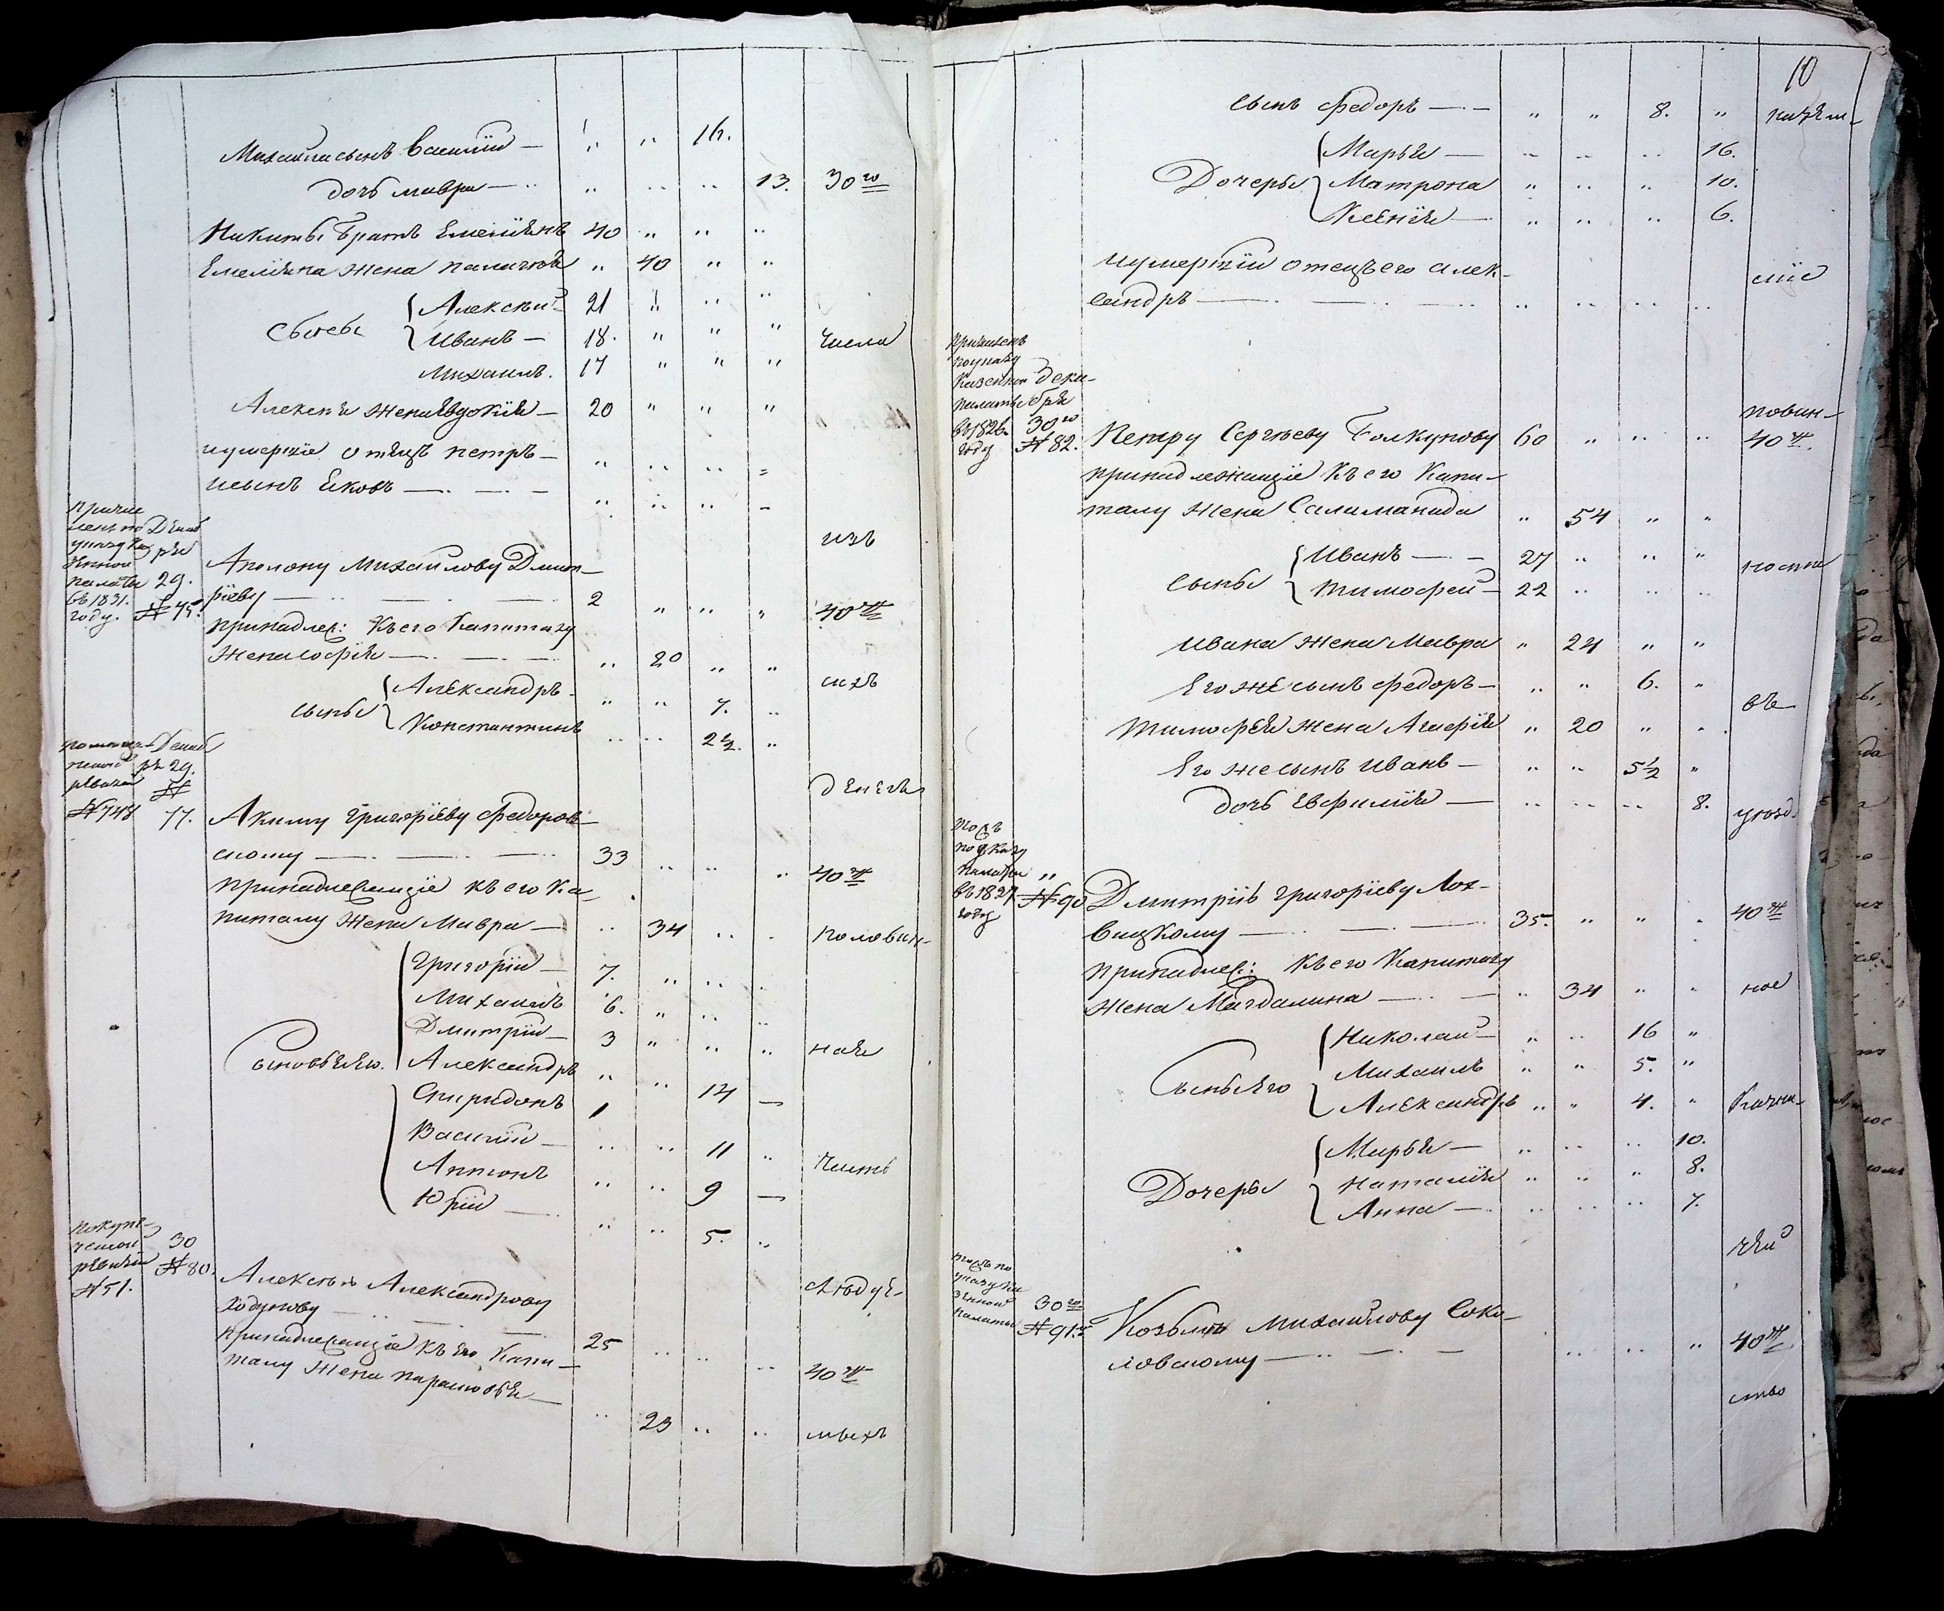 Михаила сынъ Василій — " " 16.
дочь Мавра — " " " 13. 30го
Никиты братъ Емеліянъ 40 " " "
Емеліяна жена Палагея " 40 " "
Сыновья { Алексѣй 21 " " "
Иванъ — 18. " " " числа
Михаилъ. 17 " " "
Алексѣя жена Евдокія — 20 " " "
и умершіе отецъ Петръ — " " " "
и сынъ Яковъ — " " " "
изъ
Причи
ленъ по Декаб
указу Ка ря
зенной
палаты 29.
въ 1831.
году. № 75.
Аполону Михайлову Дмит-
ріеву — 2 " " " 40й
принадлеж: къ его капиталу
жена Софія — " 20 " "
сихъ
сыны { Александръ — " " 7. "
Константинъ " " 2½. "
Декаб
ря 29.
№ 748 № 77.
денегъ
Акиму Григоріеву Федоров-
скому — 33 " " " 40й
принадлежащіе къ его ка-
питалу жена Мавра — " 34 " " половин-
Сыновья его. { Григорій — 7. " " "
Михаилъ 6. " " "
Дмитрій — 3 " " " ная
Александръ " " 14 —
Спиридонъ 1
Василій — " " 11 "
Антонъ " " 9 — часть
Юрій — " " 5. "
по купе-
ческой 30
ревизіи № 80.
№ 51.
слѣдуе-
Алексѣю Александрову
Ходунову — 25 " " " 40й
принадлежащіе къ его капи-
талу жена Парасковья — " 23 " " мыхъ
10
сынъ Федоръ — " " 8. " казен-
Дочеры { Марья — " " " 16.
Матрона " " " 10.
Ксенія — " " " 6.
и умершій отецъ его Алек-
сандръ — " " " "
сіе
Причисленъ
по указу
Казенной Дека-
палаты бря
въ 1826. 30го
году № 82.
Петру Сергѣеву Толкунову 60 " " " 40й.
повин-
принадлежащіе къ его капи-
талу жена Салиманида " 54 " "
сыны { Иванъ — 27 " " "
Тимофей — 22 " " " ности
Ивана жена Мавра " 24 " "
Его же сынъ Федоръ — " " 6. "
въ
Тимофея жена Агафія " 20 " "
Его же сынъ Иванъ — " " 5½ "
дочь Евфимія — " " " 8. уѣзд.
тожъ
по указу
палаты "
въ 1827 № 90
году
Дмитрію Григоріеву Лох-
вицкому — 35. " " " 40й
принадлеж: къ его капиталу
жена Магдалина — " 34 " " ное
Сыны его { Николай — " " 16 "
Михаилъ " " 5. "
Александръ " " 4. " Казна-
Дочеры { Марья — " " " 10.
Наталія " " " 8.
Анна — " " " 7.
чей
тожъ по
указу Ка
зенной 30го
палаты № 91й
Козьмѣ Михайлову Соко-
ловскому — " " " 40й
ство